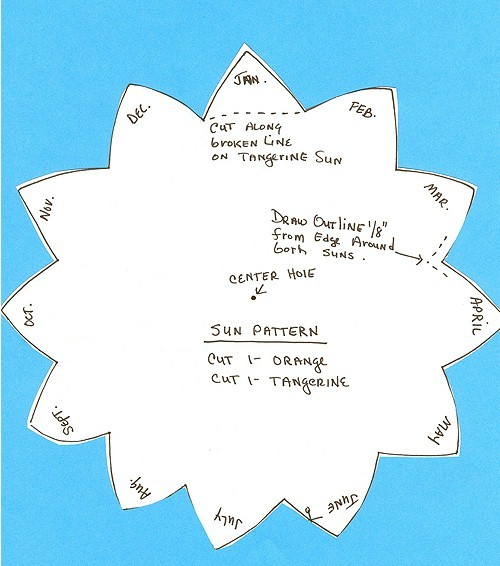 JAN.
FEB.
MAR.
APRIL
MAY
JUNE
JULY
Aug
Sept.
OCT.
NOV.
DEC.
CUT ALONG
broken LinE
on TangErinE Sun
DRAW OUTLINE 1/8"
from Edge Around
both suns.
CENTER HOLE
SUN PATTERN
CUT 1- ORANGE
CUT 1- TANGERINE